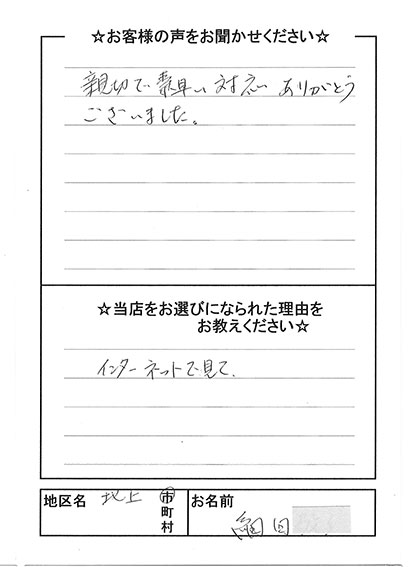 ☆お客様の声をお聞かせください☆
親切で素早い対応ありがとう
ございました。
☆当店をお選びになられた理由を
お教えください☆
インターネットで見て、
地区名 北上 市
町
村
お名前 田